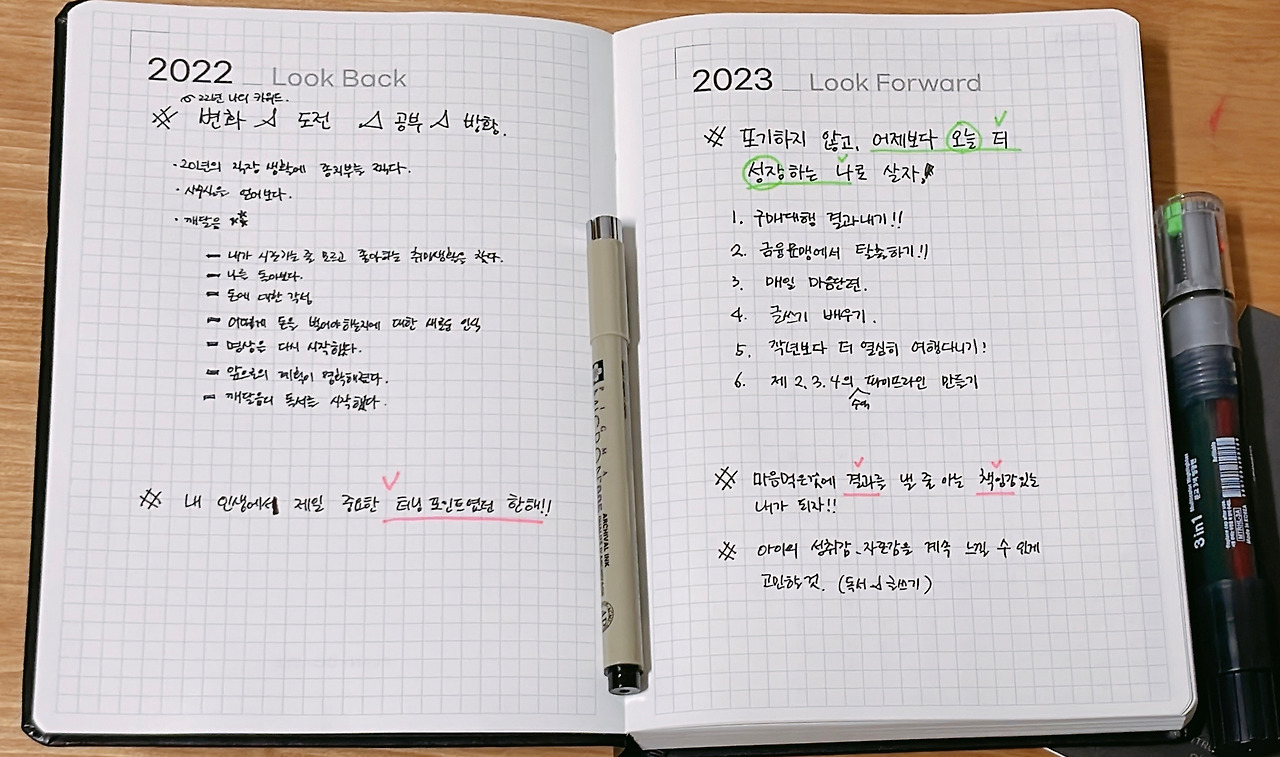 2022 _ Look Back
22년 나의 키워드.
변화 도전 공부 방황.
· 20년의 직장 생활에 종지부를 찍다.
· 사무실을 얻어보다.
· 깨달음
- 내가 시간가는줄 모르고 좋아하는 취미생활을 찾다.
- 나를 돌아보다.
- 돈에 대한 각성
- 어떻게 돈을 벌어야하는지에 대한 새로운 인식
- 명상을 다시 시작했다.
- 앞으로의 계획이 명확해졌다.
- 깨달음의 독서를 시작했다.
내 인생에서 제일 중요한 터닝 포인트였던 한해!!
2023 _ Look Forward
포기하지 않고, 어제보다 오늘 더
성장하는 나로 살자!
1. 구매대행 결과내기!!
2. 금융문맹에서 탈출하기!!
3. 매일 마음단련.
4. 글쓰기 배우기.
5. 작년보다 더 열심히 여행다니기!
6. 제 2, 3, 4의 파이프라인 만들기
수익
마음먹은것에 결과를 낼 줄 아는 책임감있는
내가 되자!!
아이의 성취감, 자존감을 계속 느낄 수 있게
고민할 것. (독서 글쓰기)
PIGMA
MICRON
ARCHIVAL INK
3 in 1